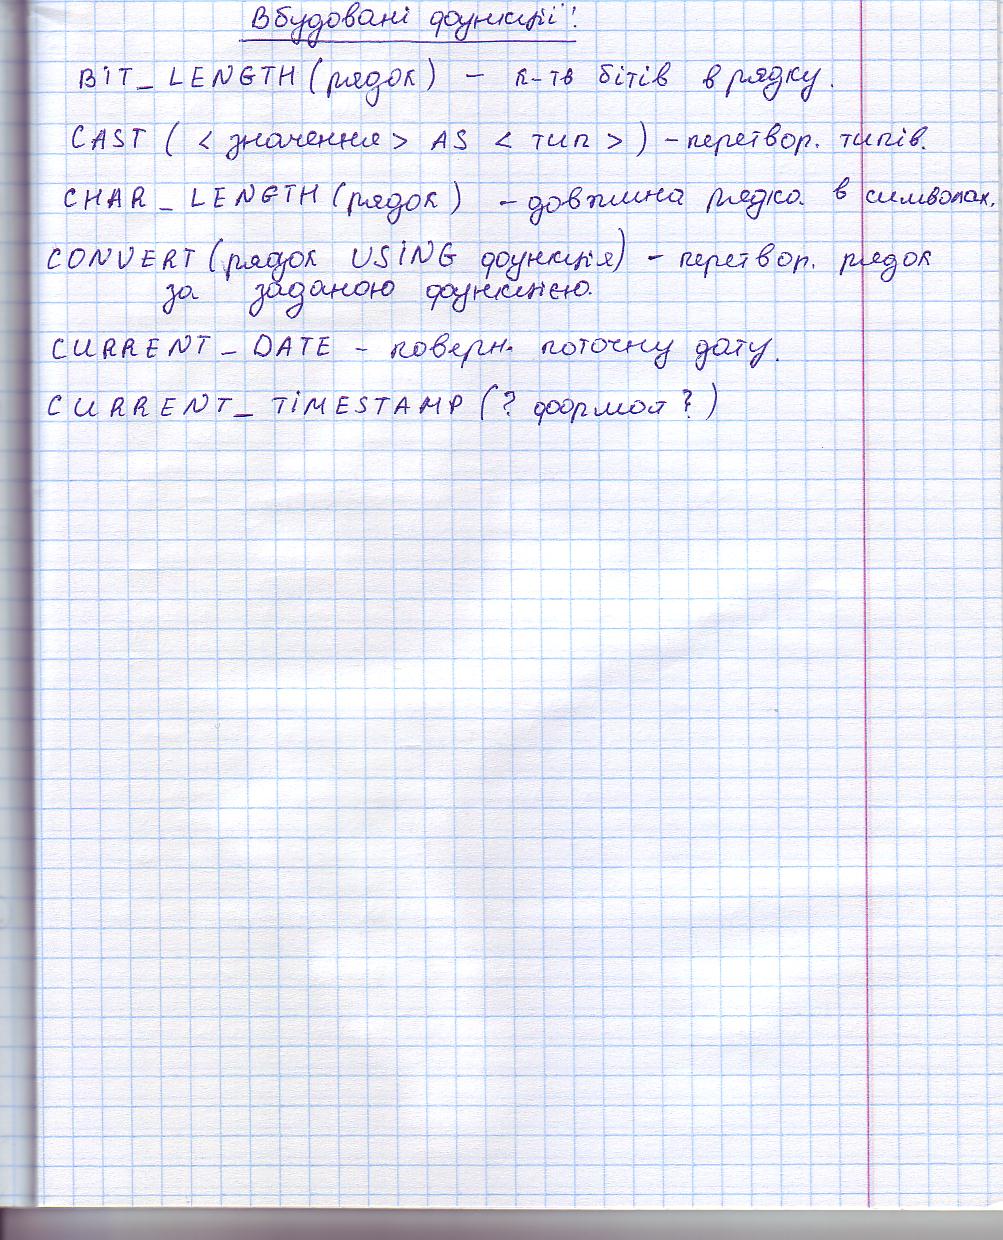 Вбудовані функції!
BIT_LENGTH (рядок) - к-ть бітів в рядку.
CAST ( < значення > AS < тип > ) - перетвор. типів.
CHAR_LENGTH (рядок) - довжина рядка в символах.
CONVERT (рядок USING функція) - перетвор. рядок
за заданою функцією.
CURRENT_DATE - поверн. поточну дату.
CURRENT_TIMESTAMP (? формат ?)